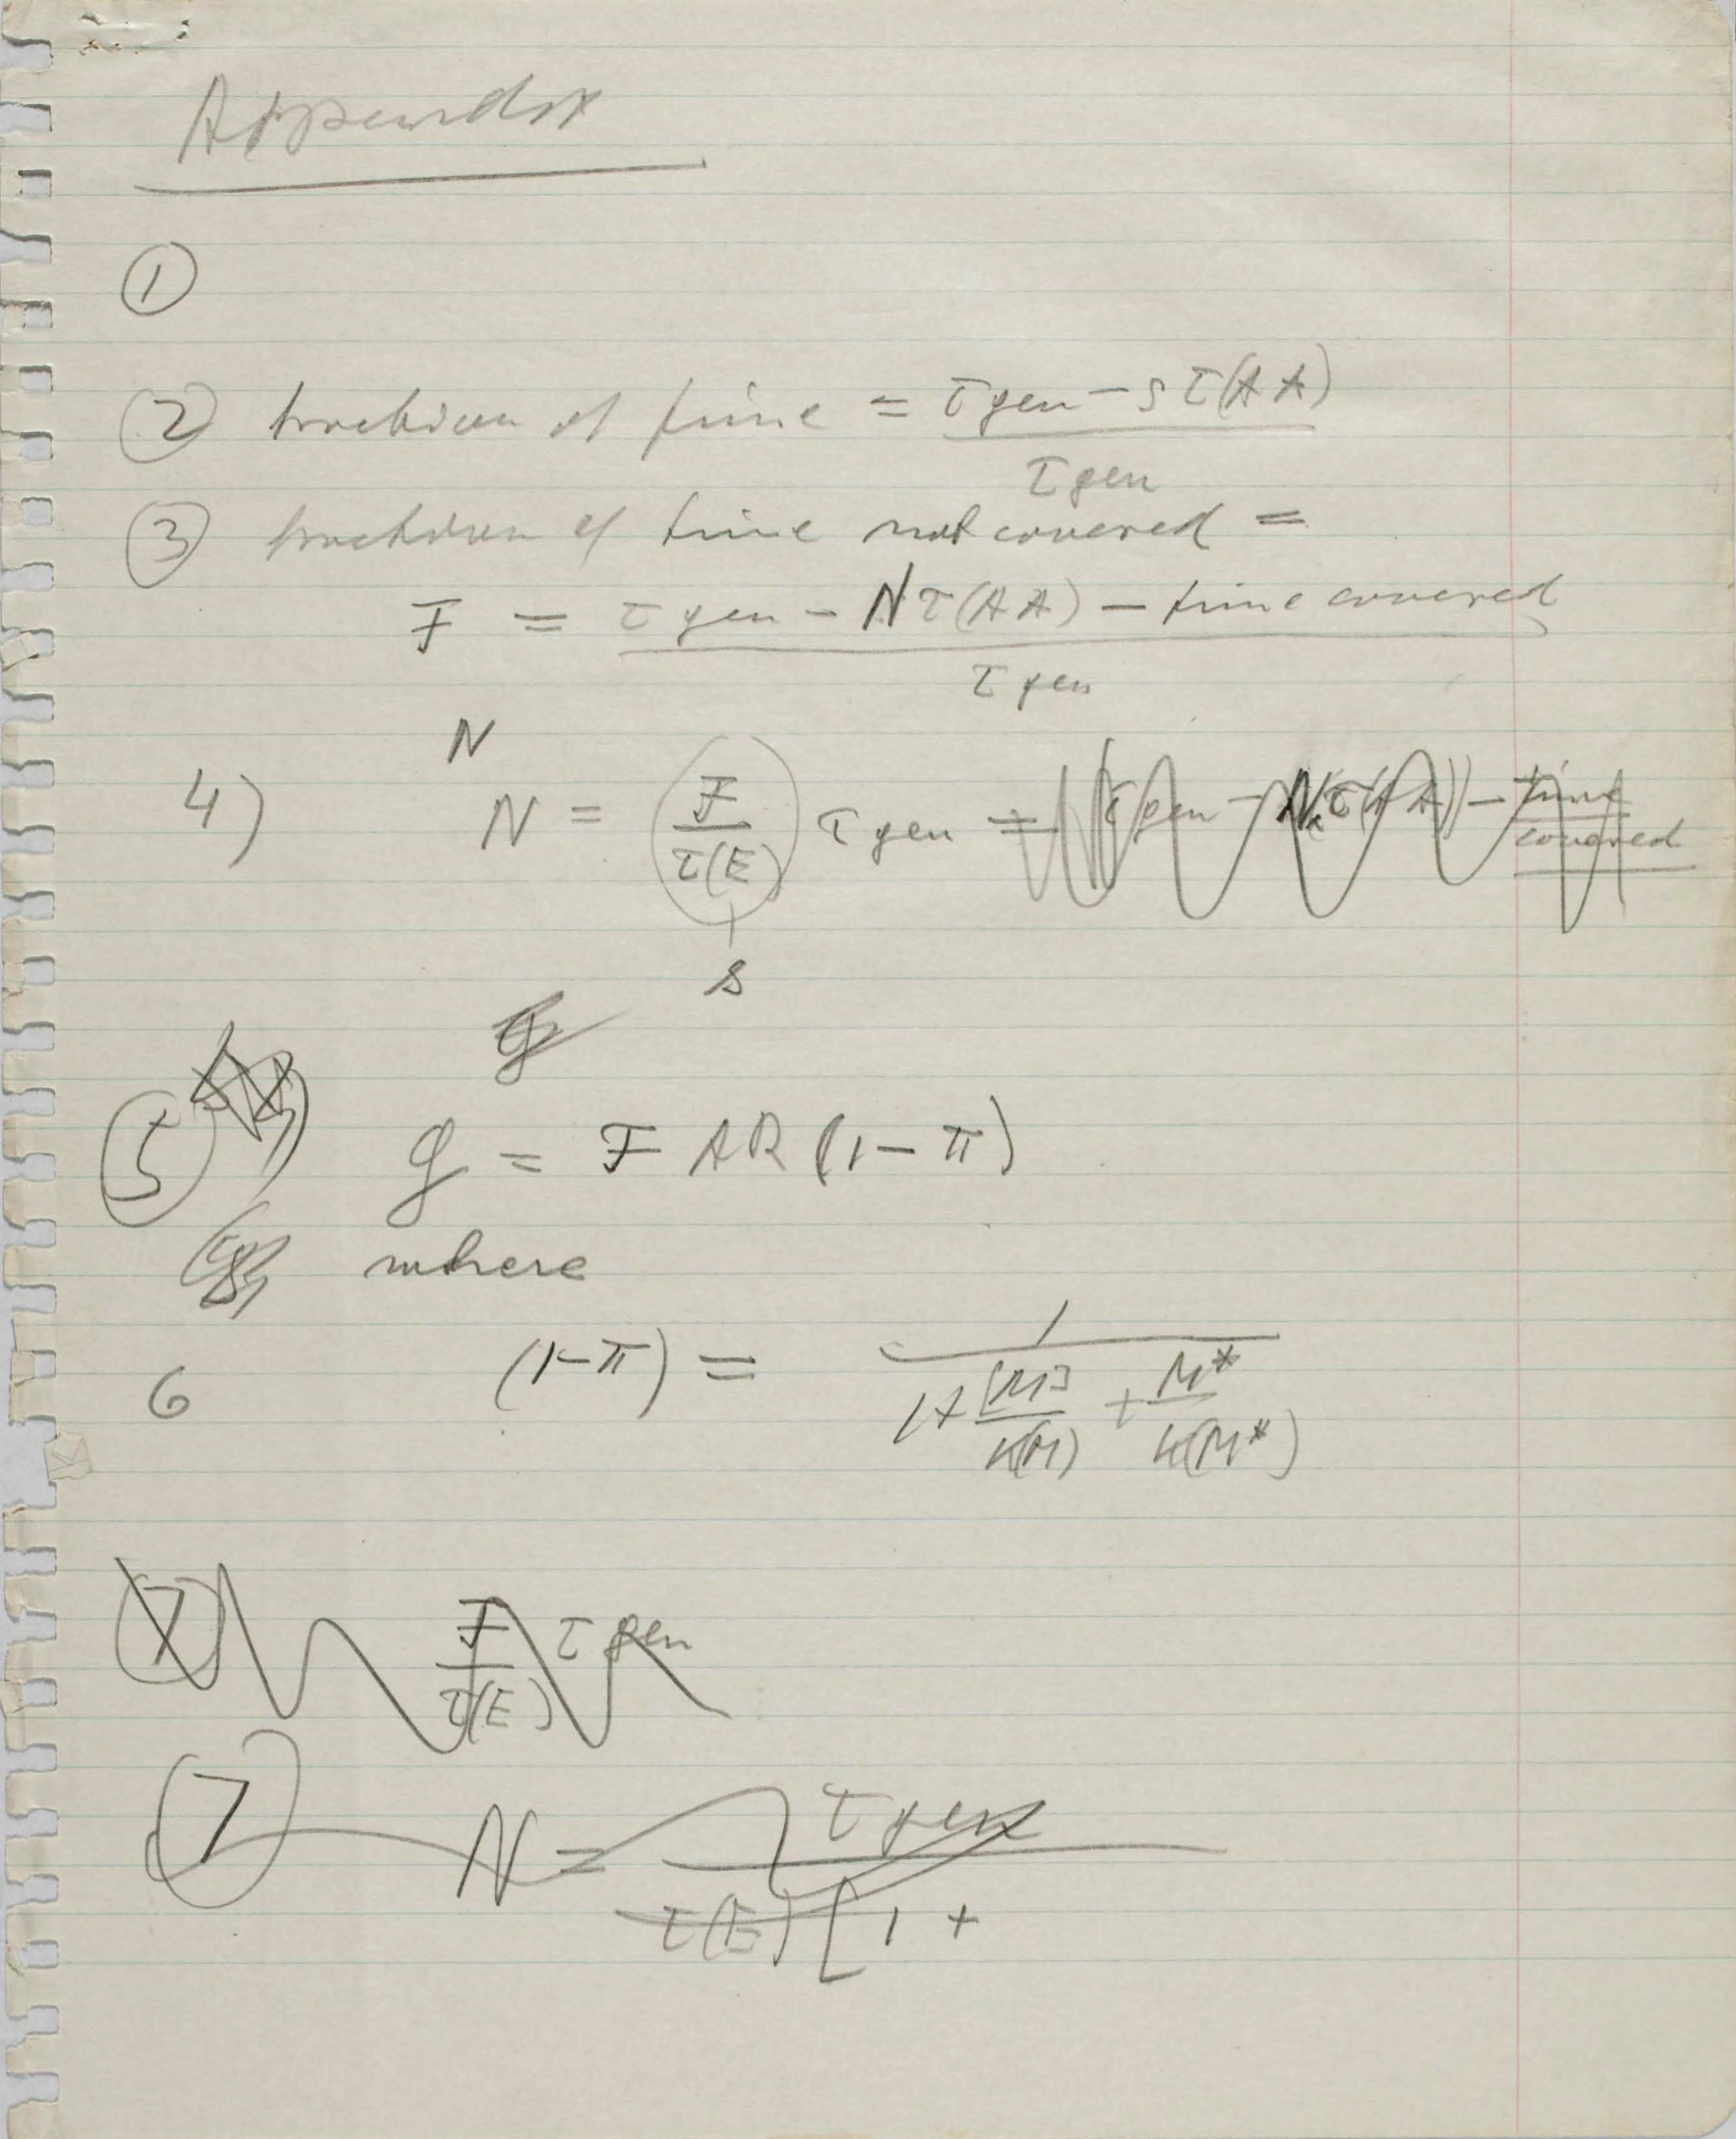 Appendix
①
② fraction of time = (τ gen − s τ(AA)) / τ gen
③ fraction of time not covered =
F = (τ gen − N τ(AA) − time covered) / τ gen
N
4) N = (F / τ(E)) τ gen = τ gen − N τ(AA) − time covered
s
g
⑤ g = F AR (1 − π)
where
6 (1−π) = 1 / (1 + [M] / K(M) + M* / K(M*))
⑦ F / τ(E) τ gen
⑦ N = τ gen / τ(E) [1 +